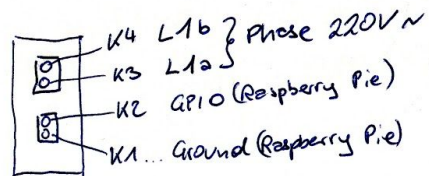 K4 L1b } Phase 220V ~
K3 L1a
K2 GPIO (Raspberry Pie)
K1 ... Ground (Raspberry Pie)